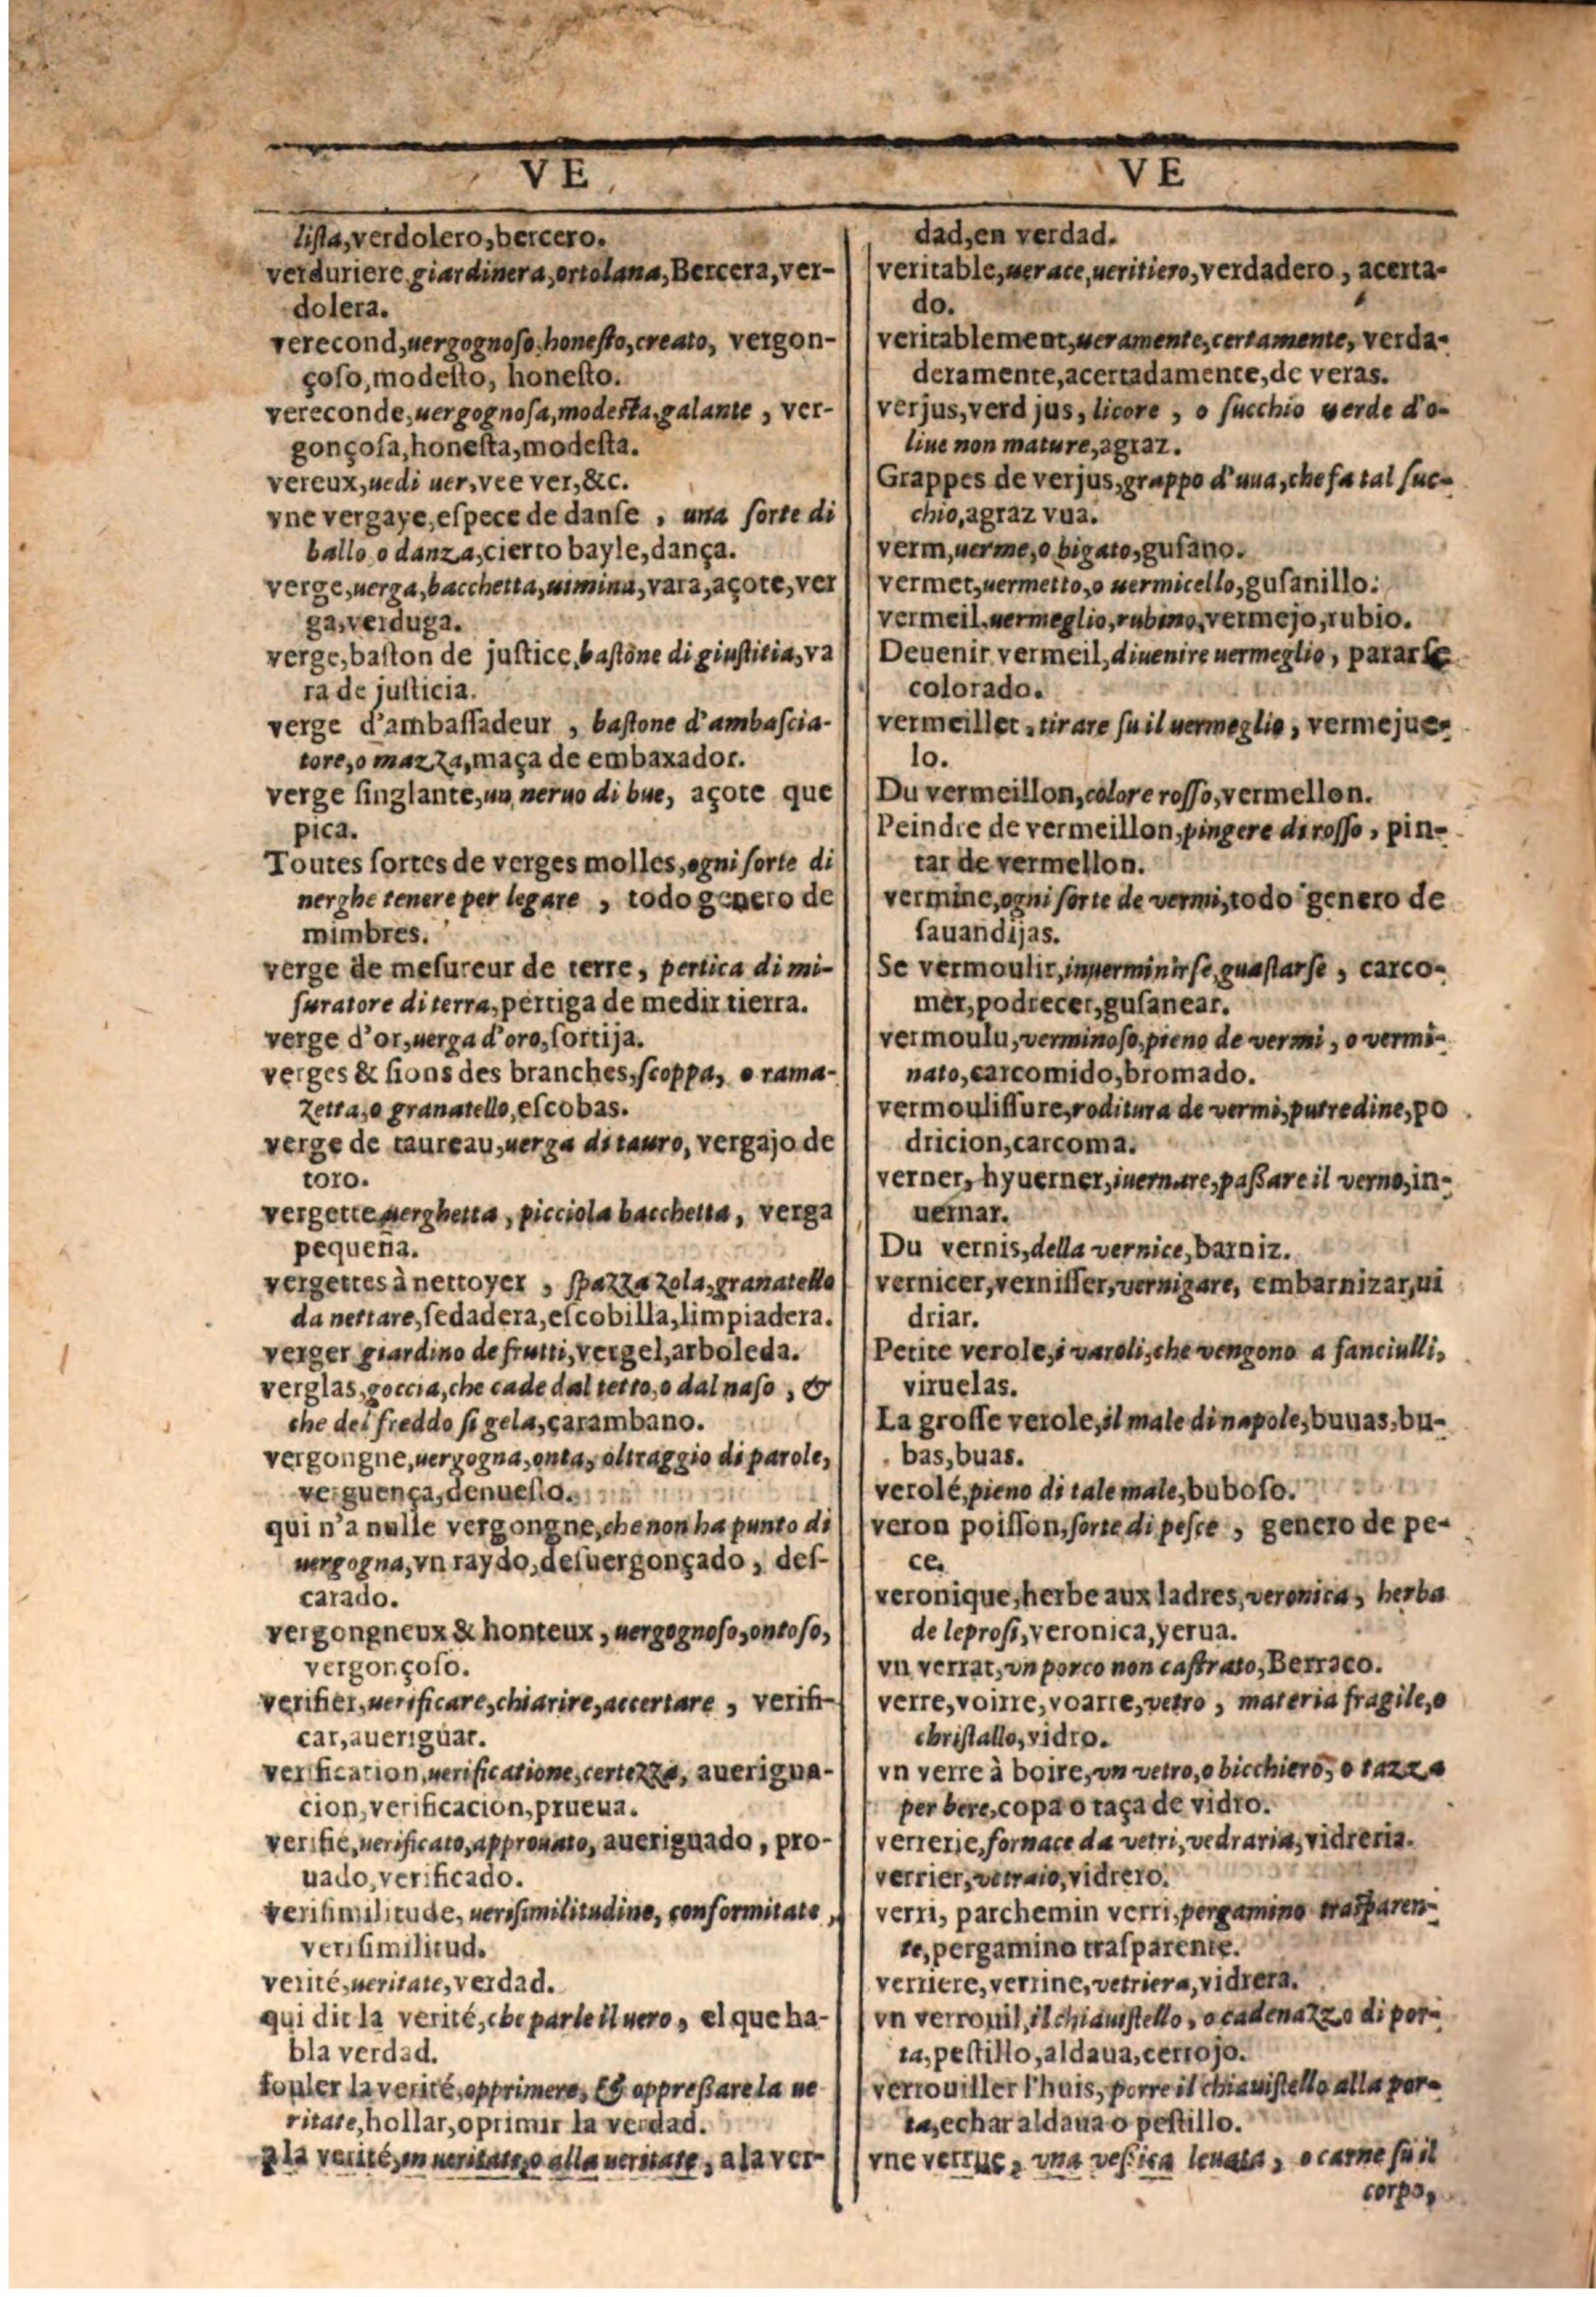 VE
liſta,verdolero,bercero.
verduriere,giardinera,ortolana,Bercera,ver-
dolera.
verecond,uergognoſo,honeſto,creato, vergon-
çoſo,modeſto, honeſto.
vereconde,uergognoſa,modeſta,galante , ver-
gonçoſa,honeſta,modeſta.
vereux,uedi uer,vee ver,&c.
vne vergaye,eſpece de danſe , una ſorte di
ballo o danza,cierto bayle,dança.
verge,uerga,bacchetta,uimina,vara,açote,ver
ga,verduga.
verge,baſton de juſtice,baſtone di giuſtitia,va
ra de juſticia.
verge d'ambaſſadeur , baſtone d'ambaſcia-
tore,o mazza,maça de embaxador.
verge ſinglante,un neruo di bue, açote que
pica.
Toutes ſortes de verges molles,ogni ſorte di
uerghe tenere per legare , todo genero de
mimbres.
verge de meſureur de terre, pertica di mi-
ſuratore di terra,pertiga de medir tierra.
verge d'or,uerga d'oro,ſortija.
verges & ſions des branches,ſcoppa, o rama-
zetta,o granatello,eſcobas.
verge de taureau,uerga di tauro, vergajo de
toro.
vergette uerghetta , picciola bacchetta, verga
pequeña.
vergettes à nettoyer , ſpazzazola,granatello
da nettare,ſedadera,eſcobilla,limpiadera.
verger giardino de frutti,vergel,arboleda.
verglas,goccia,che cade dal tetto,o dal naſo , &
che del freddo ſi gela,carambano.
vergongne,uergogna,onta,oltraggio di parole,
verguença,denueſto.
qui n'a nulle vergongne,che non ha punto di
uergogna,vn raydo,deſuergonçado, deſ-
carado.
vergongneux & honteux , uergognoſo,ontoſo,
vergonçoſo.
verifier,uerificare,chiarire,accertare , verifi-
car,aueriguar.
verification,uerificatione,certezza, auerigua-
cion,verificacion,prueua.
verifié,uerificato,approuato, aueriguado , pro-
uado,verificado.
veriſimilitude, ueriſimilitudine, conformitate ,
veriſimilitud.
verité,ueritate,verdad.
qui dit la verité,che parle il uero, el que ha-
bla verdad.
fouler la verité,opprimere, & oppreſſare la ue
ritate,hollar,oprimir la verdad.
a la verité,in ueritate,o alla ueritate, a la ver-
VE
dad,en verdad.
veritable,uerace,ueritiero,verdadero, acerta-
do.
veritablement,ueramente,certamente, verda-
deramente,acertadamente,de veras.
verjus,verd jus, licore , o ſucchio verde d'o-
liue non mature,agraz.
Grappes de verjus,grappo d'uua,che fa tal ſuc-
chio,agraz vua.
verm,uerme,o bigato,guſano.
vermet,uermetto,o uermicello,guſanillo.
vermeil,uermeglio,rubino,vermejo,rubio.
Deuenir vermeil,diuenire uermeglio, pararſe
colorado.
vermeillet,tirare ſu il uermeglio, vermejue-
lo.
Du vermeillon,colore roſſo,vermellon.
Peindre de vermeillon,pingere di roſſo, pin-
tar de vermellon.
vermine,ogni ſorte de vermi,todo genero de
ſauandijas.
Se vermoulir,inuerminirſe,guaſtarſe , carco-
mer,podrecer,guſanear.
vermoulu,verminoſo,pieno de vermi , o vermi-
nato,carcomido,bromado.
vermouliſſure,roditura de vermi,putredine,po
dricion,carcoma.
verner, hyuerner,inuernare,paſſare il verno,in-
uernar.
Du vernis,della vernice,barniz.
vernicer,verniſſer,vernigare, embarnizar,ui
driar.
Petite verole,i varoli,che vengono a fanciulli,
viruelas.
La groſſe verole,il male di napole,buuas,bu-
bas,buas.
verolé,pieno di tale male,buboſo.
veron poiſſon,ſorte di peſce , genero de pe-
ce.
veronique,herbe aux ladres,veronica, herba
de leproſi,veronica,yerua.
vn verrat,vn porco non caſtrato,Berraco.
verre,voirre,voarre,vetro , materia fragile,o
chriſtallo,vidro.
vn verre à boire,vn vetro,o bicchiero, o tazza
per bere,copa o taça de vidro.
verrerie,fornace da vetri,vedraria,vidreria.
verrier,vetraio,vidrero.
verri, parchemin verri,pergamino traſparen-
te,pergamino traſparente.
verriere,verrine,vetriera,vidrera.
vn verrouil,il chiauiſtello, o cadenazzo di por-
ta,peſtillo,aldaua,cerrojo.
verrouiller l'huis, porre il chiauiſtello alla por-
ta,echar aldaua o peſtillo.
vne verrue, vna veſſica leuata, o carne ſu il
corpo,